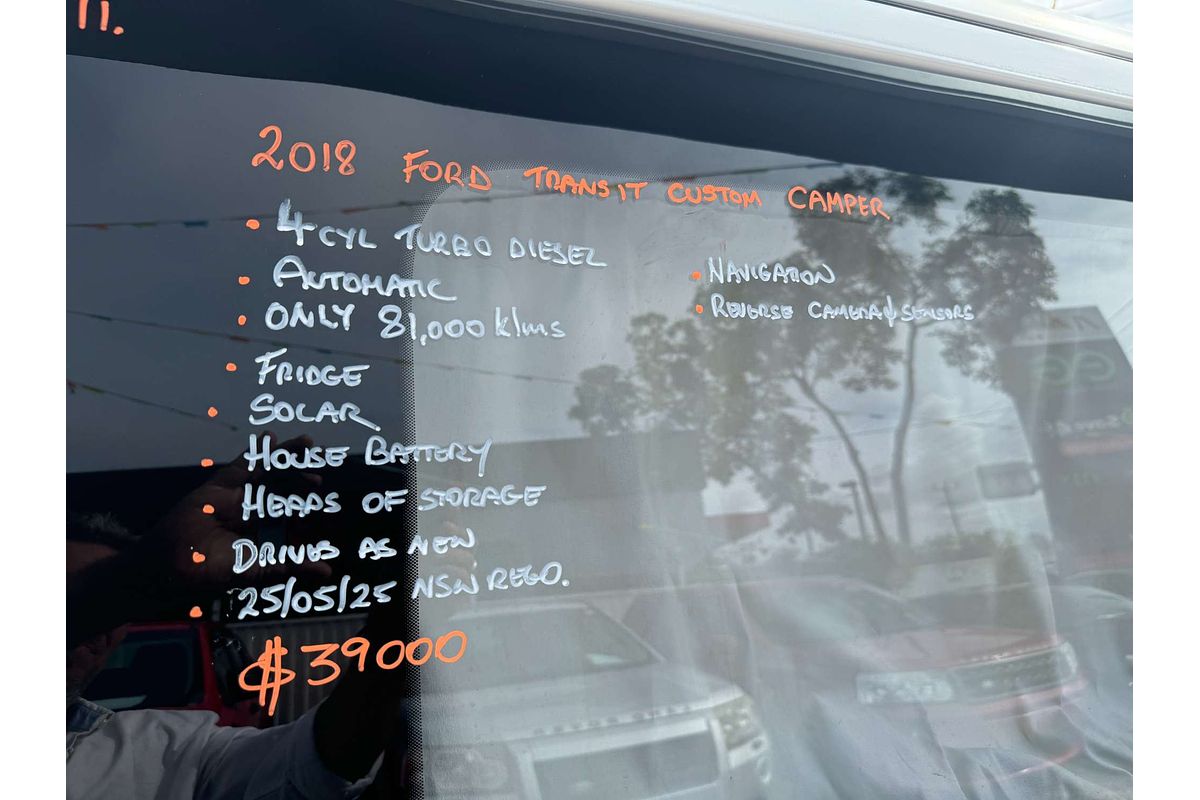 11.
2018 FORD TRANSIT CUSTOM CAMPER
• 4 CYL TURBO DIESEL
• AUTOMATIC
• ONLY 81,000 klms
• FRIDGE
• SOLAR
• HOUSE BATTERY
• HEAPS OF STORAGE
• DRIVES AS NEW
• 25/05/25 NSW REGO.
$39000
• NAVIGATION
• REVERSE CAMERA & SENSORS